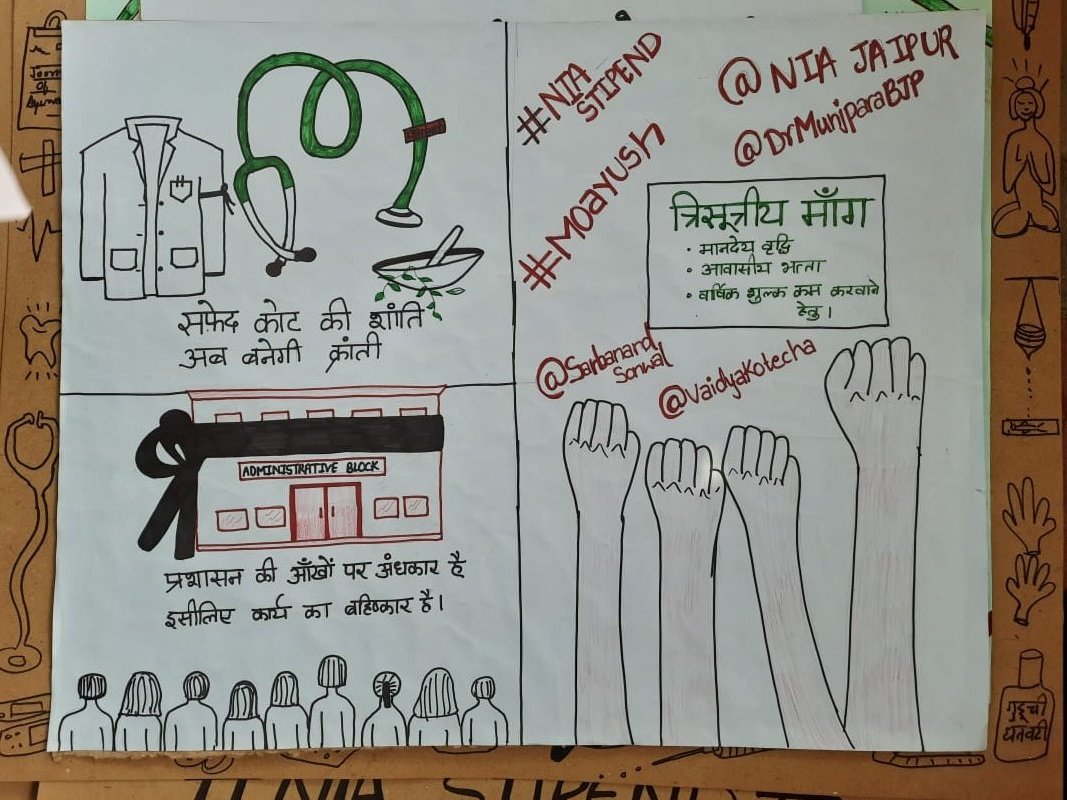 सफेद कोट की शांति
अब बनेगी क्रांती
ADMINISTRATIVE BLOCK
प्रशासन की आँखों पर अंधकार है
इसीलिए कार्य का बहिष्कार है।
#NIA
STIPEND
@NIA JAIPUR
@DrMunjparaBJP
#MOAYUSH
त्रिसूत्रीय माँग
• मानदेय वृद्धि
• आवासीय भत्ता
• वार्षिक शुल्क कम करवाने
हेतु।
@Sarbanand
Sonwal
@VaidyaKotecha
गुडूची
घनवटी
NIA STIPEND